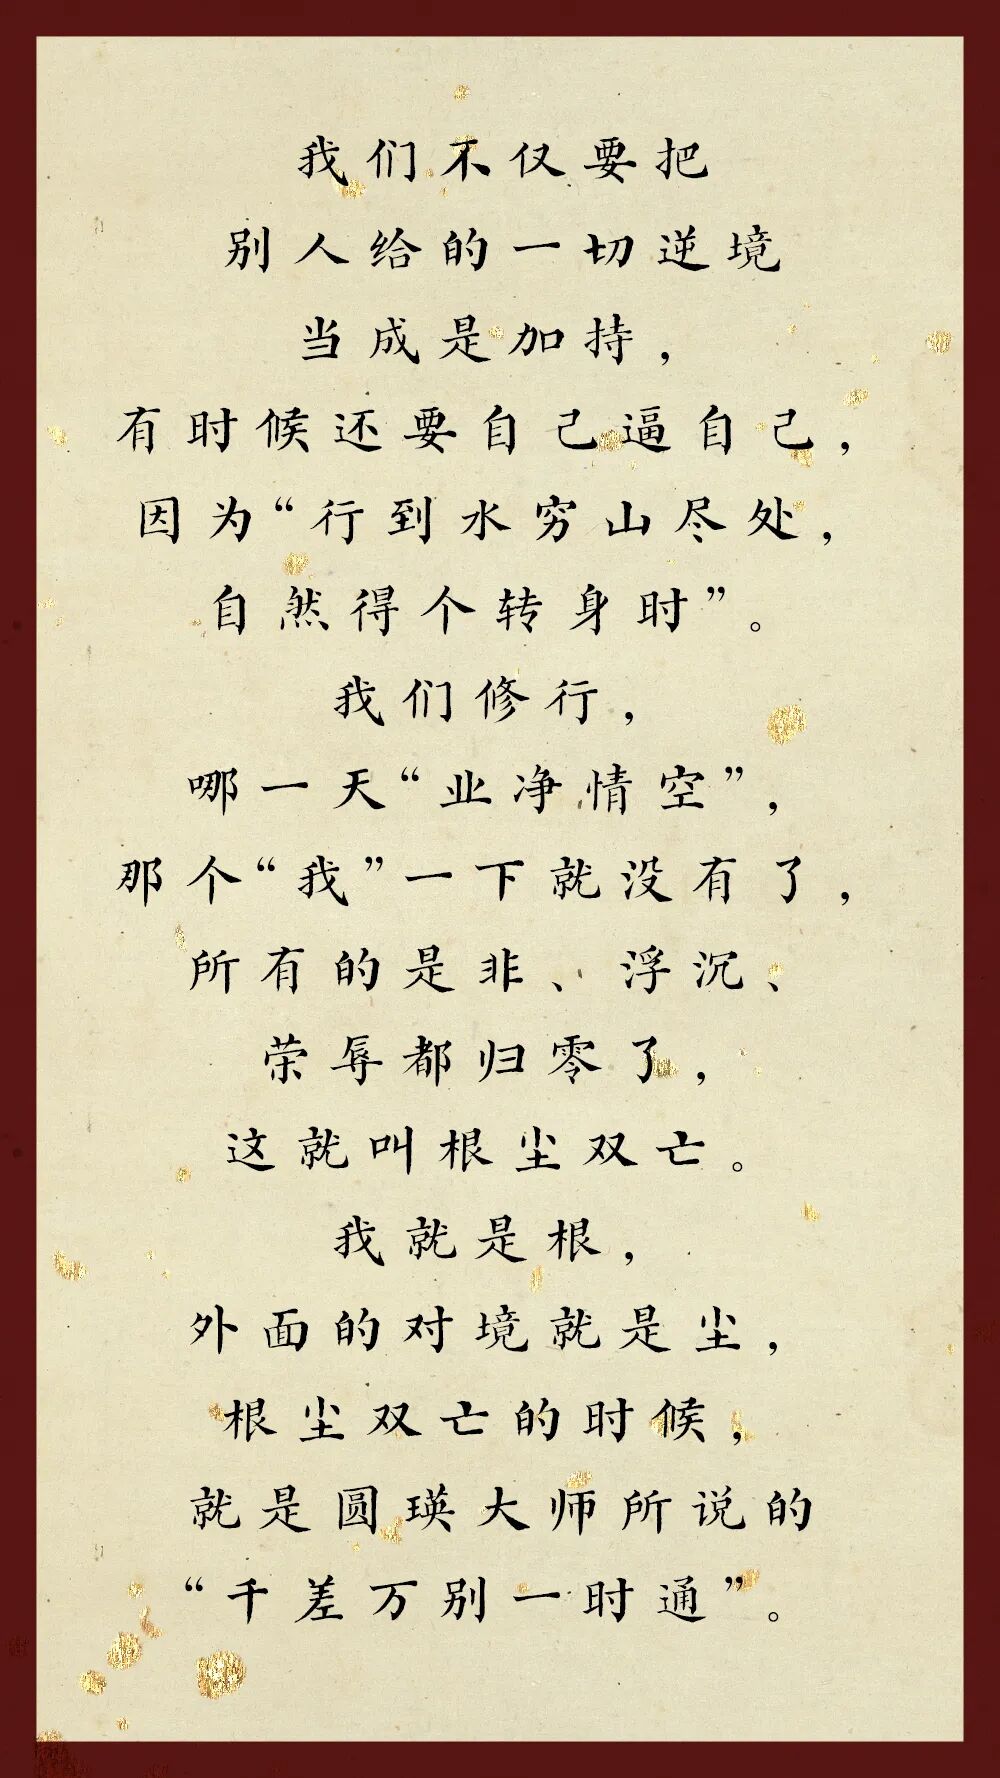 我们不仅要把
别人给的一切逆境
当成是加持，
有时候还要自己逼自己，
因为“行到水穷山尽处，
自然得个转身时”。
我们修行，
哪一天“业净情空”，
那个“我”一下就没有了，
所有的是非、浮沉、
荣辱都归零了，
这就叫根尘双亡。
我就是根，
外面的对境就是尘，
根尘双亡的时候，
就是圆瑛大师所说的
“千差万别一时通”。